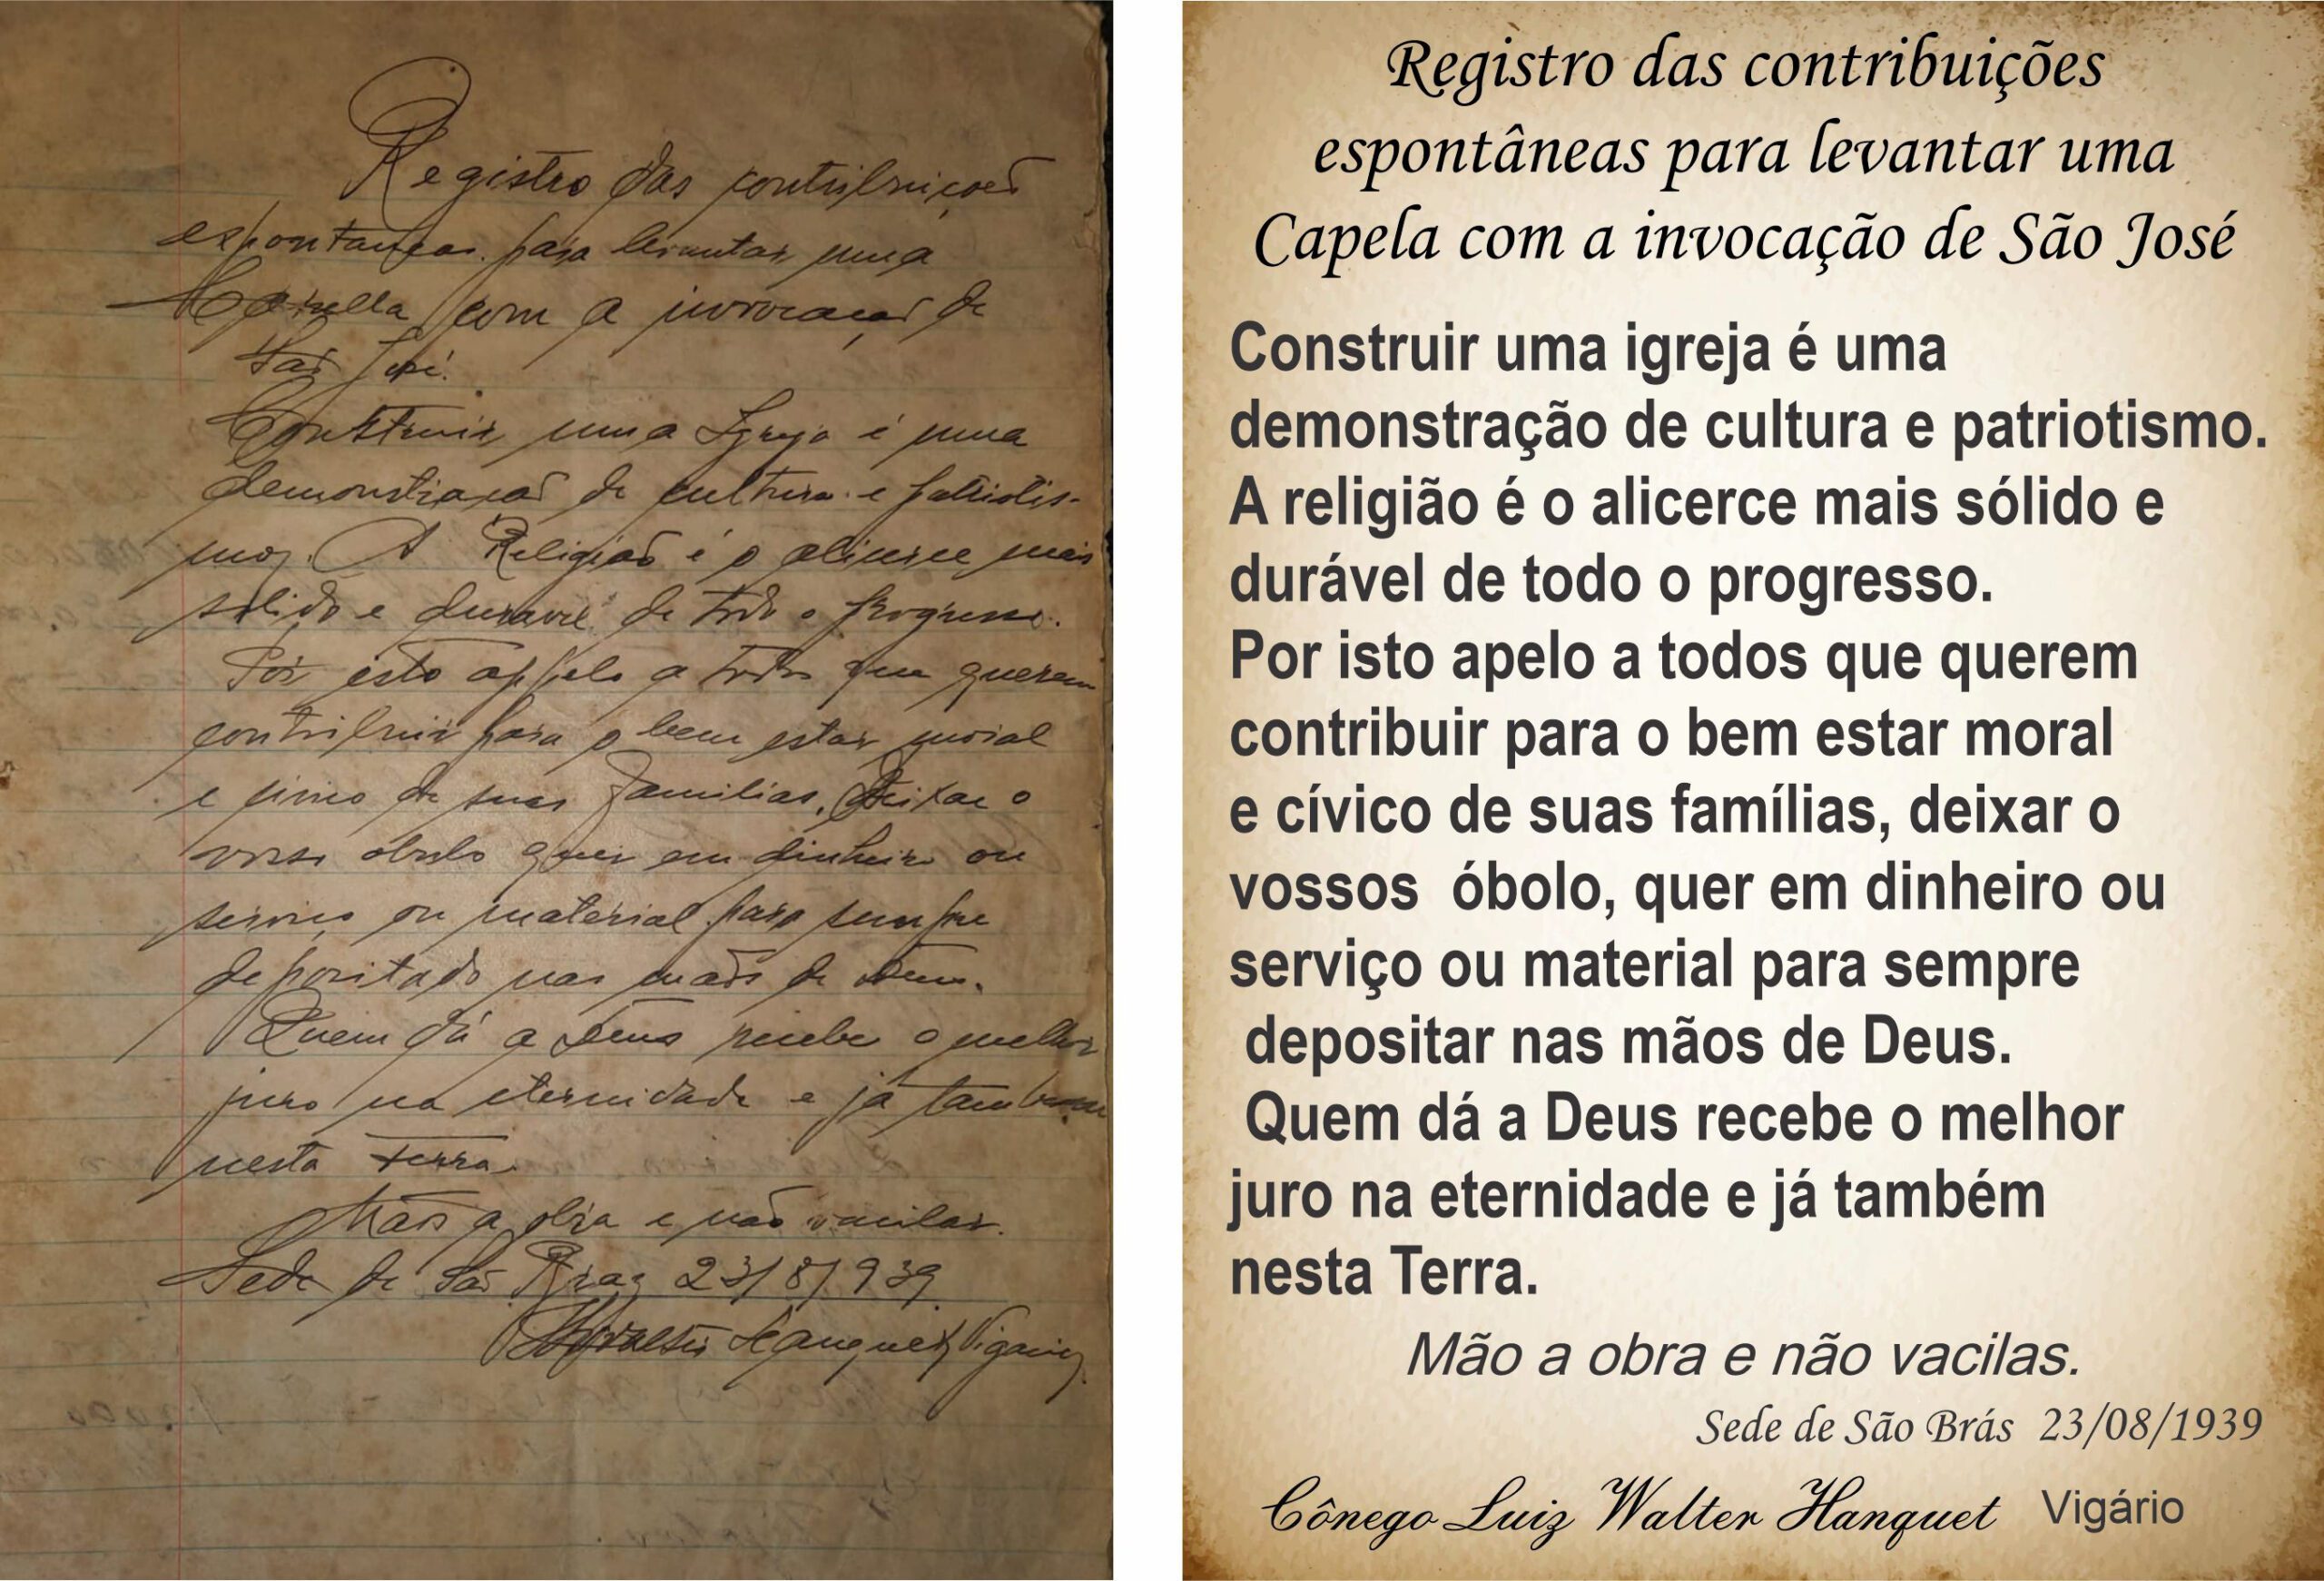 Registro das contribuições
espontaneas para levantar uma
Capella com a invocação de
São José.
Construir uma Igreja é uma
demonstração de cultura e patriotis-
mo. A Religião é o alicerce mais
solido e duravel de todo o progresso.
Por isto appelo a todos que querem
contribuir para o bem estar moral
e civico de suas familias, deixar o
vosso obolo quer em dinheiro ou
serviço ou material para sempre
depositado nas mãos de Deus.
Quem dá a Deus recebe o melhor
juro na eternidade e já tambem
nesta terra.
Mãos a obra e não vacilar.
Sede de São Braz 23/8/939
Walter Hanquet, Vigario
Registro das contribuições
espontâneas para levantar uma
Capela com a invocação de São José
Construir uma igreja é uma
demonstração de cultura e patriotismo.
A religião é o alicerce mais sólido e
durável de todo o progresso.
Por isto apelo a todos que querem
contribuir para o bem estar moral
e cívico de suas famílias, deixar o
vossos óbolo, quer em dinheiro ou
serviço ou material para sempre
depositar nas mãos de Deus.
Quem dá a Deus recebe o melhor
juro na eternidade e já também
nesta Terra.
Mão a obra e não vacilas.
Sede de São Brás 23/08/1939
Cônego Luiz Walter Hanquet Vigário